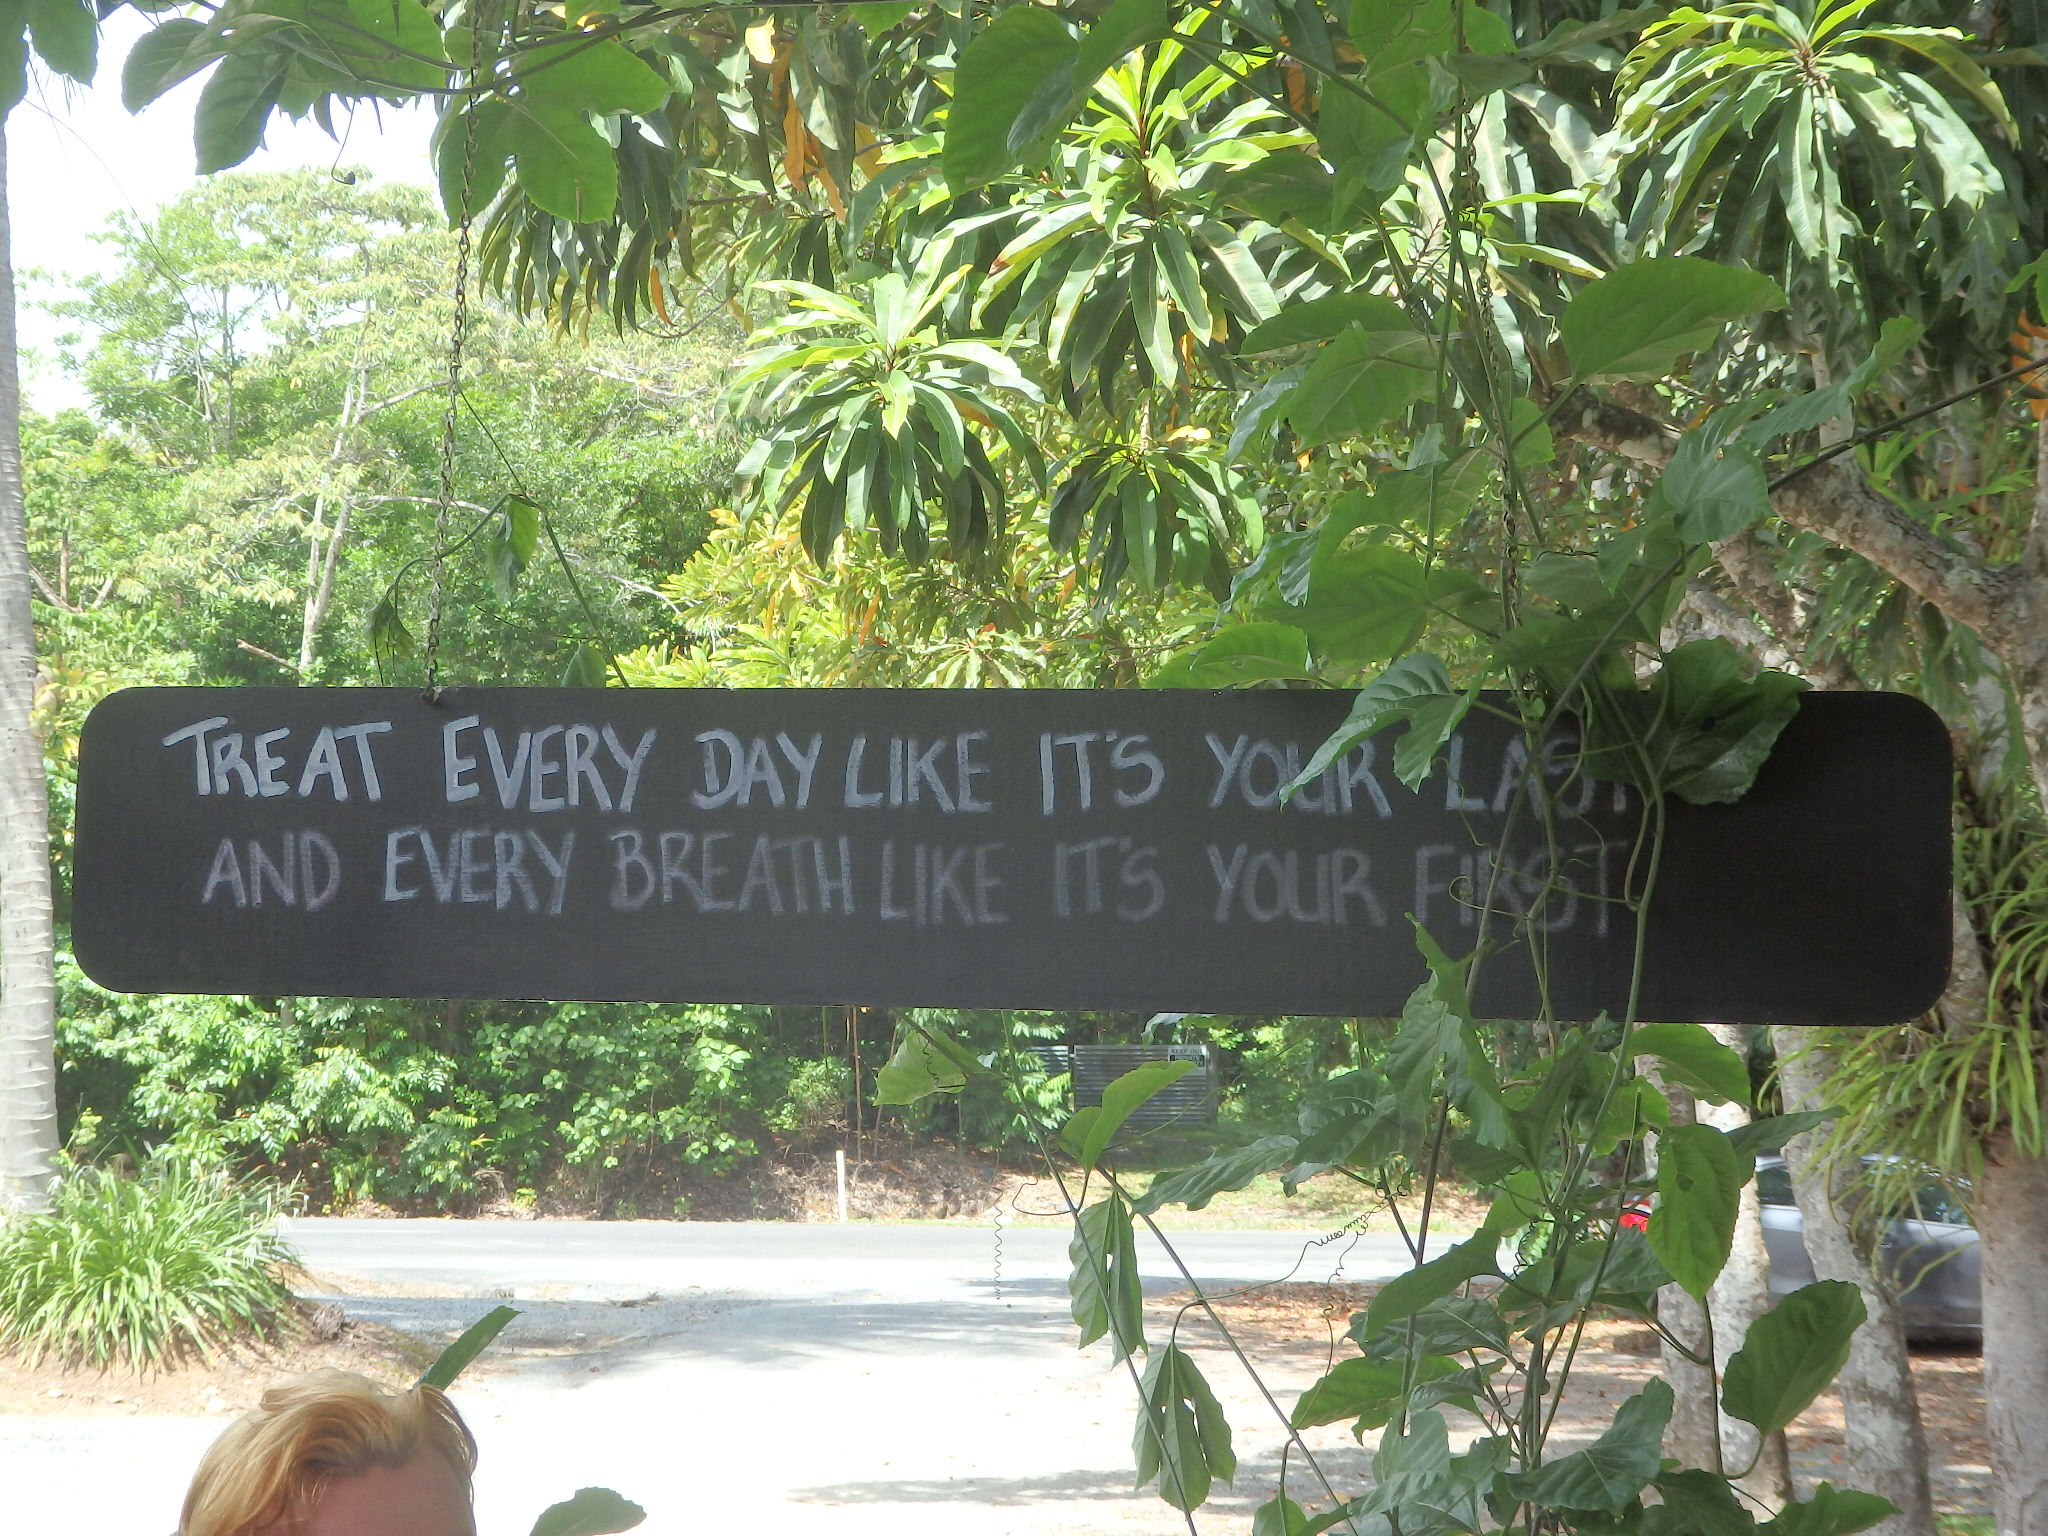 TREAT EVERY DAY LIKE IT'S YOUR LAST
AND EVERY BREATH LIKE IT'S YOUR FIRST